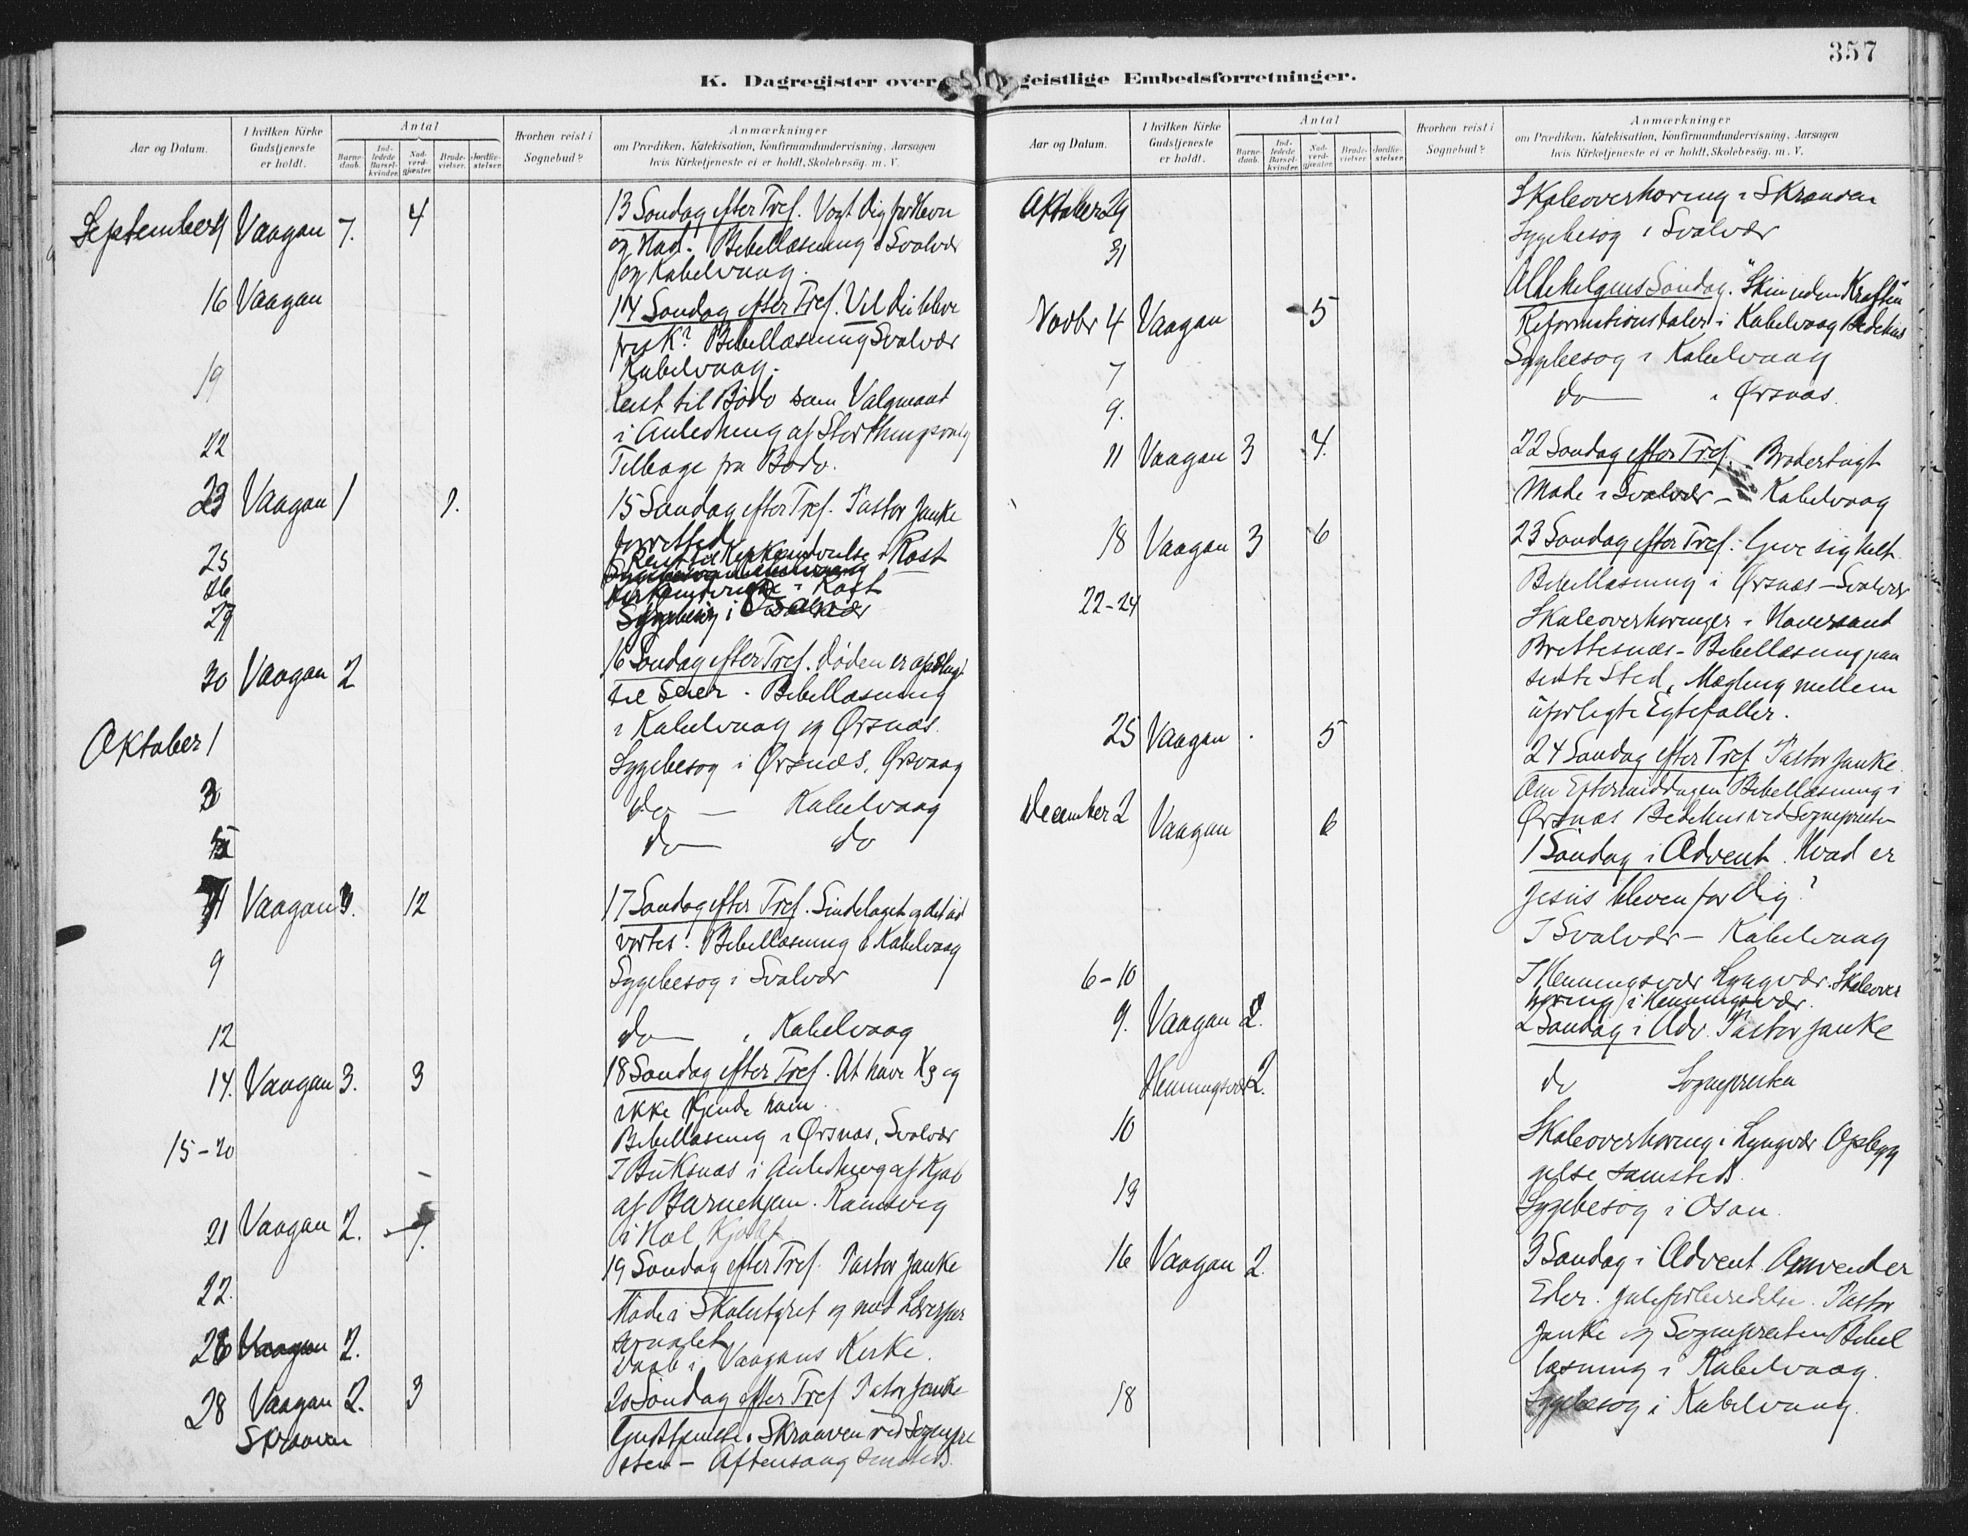 357
K. Dagregister over geistlige Embedsforretninger.
Aar og Datum.
I hvilken Kirke Gudstjeneste er holdt.
Antal
Barnedaab.
Indledede Barselkvinder.
Nadverdgjæster.
Brudevielser.
Jordfæstelser.
Hvorhen reist i Sognebud?
Anmærkninger
om Prædiken, Katekisation, Konfirmandundervisning, Aarsagen
hvis Kirketjeneste ei er holdt, Skolebesøg. m. V.
September 9 Vaagan 7. 4 13 Søndag efter Tref. Vogt Dig for Havn
og Had. Bibellæsning i Svolvær
og Kabelvaag.
16 Vaagan 14 Søndag efter Tref. Vil Du blive
frisk? Bibellæsning Svolvær
Kabelvaag.
19 Reist til Bodø som Valgmand
i Anledning af Storthingsvalg
22 Tilbage fra Bodø.
23 Vaagan 1 1. 15 Søndag efter Tref. Pastor Janke
forrettede
25 Reist til Kirkeindvielse i Røst
26 Røst
29 Sygebesøg i Svolvær
30 Vaagan 2 16 Søndag efter Tref. Døden er opslugt
til Seier. Bibellæsning
i Kabelvaag og Ørsnæs.
Oktober 1 Sygebesøg i Ørsnæs, Ørsvaag
3 do — Kabelvaag
5 do do
7 Vaagan 3. 12 17 Søndag efter Tref. Sindelaget og det ud
vortes. Bibellæsning i Kabelvaag
9 Sygebesøg i Svolvær
12 do i Kabelvaag
14. Vaagan 3. 3 18 Søndag efter Tref. At have K og
ikke kjende ham.
Bibellæsning i Ørsnæs, Svolvær
15-20 I Buksnæs i Anledning af Kjøb
af Barnehjem. Ramsvig
i Hol Kjøbt
21 Vaagan 2. 7. 19 Søndag efter Tref. Pastor Janke
22. Møde i Skolestyret og med Lærerper
sonalet
26 Vaagan 2. Daab i Vaagans Kirke.
28 Vaagan 2. 3 20 Søndag efter Tref Pastor Janke
Skraaven Gudstjeneste i Skraaven ved Sognepre
sten — Aftensang smsteds.
Aar og Datum.
I hvilken Kirke Gudstjeneste er holdt.
Antal
Barnedaab.
Indledede Barselkvinder.
Nadverdgjæster.
Brudevielser.
Jordfæstelser.
Hvorhen reist i Sognebud?
Anmærkninger
om Prædiken, Katekisation, Konfirmandundervisning, Aarsagen
hvis Kirketjeneste ei er holdt, Skolebesøg. m. V.
Oktober 29 Skoleoverhøring i Skraaven
31 Sygebesøg i Svolvær
Novbr 4 Vaagan 5 Allehelgens Søndag. "Skin uden Kraften"
Reformationstaler i Kabelvaag Bedehus
7 Sygebesøg i Kabelvaag
9. do — i Ørsnæs.
11 Vaagan 3 4. 22 Søndag efter Tref. Brodersvigt
Møde i Svolvær — Kabelvaag
18 Vaagan 3 6 23 Søndag efter Tref. Give sig helt
Bibellæsning i Ørsnæs — Svolvær
22-24 Skoleoverhøringer i Haversand
Brettesnæs — Bibellæsning paa
sidste Sted, Mægling mellem
uforligte Egtefæller.
25 Vaagan . 5 24 Søndag efter Tref Pastor Janke.
Om Eftermiddagen Bibellæsning i
Ørsnæs Bedehus ved Sognepresten
December 2 Vaagan 6 1 Søndag i Advent. Hvad er
Jesus bleven for Dig?
I Svolvær — Kabelvaag
6-10 I Henningsvær Lyngvær. Skoleover
høring i Henningsvær.
9. Vaagan 2. 2 Søndag i Adv. Pastor Janke
Henningsvær 2. do Sognepresten
10 Skoleoverhøring i Lyngvær Opbygg
gelse samsteds.
13 Sygebesøg i Osan.
16 Vaagan 2. 3 Søndag i Advent Omvender
Eder. Juleforberedelse. Pastor
Janke og Sognepresten Bibel
læsning i Kabelvaag.
18 Sygebesøg i Kabelvaag.